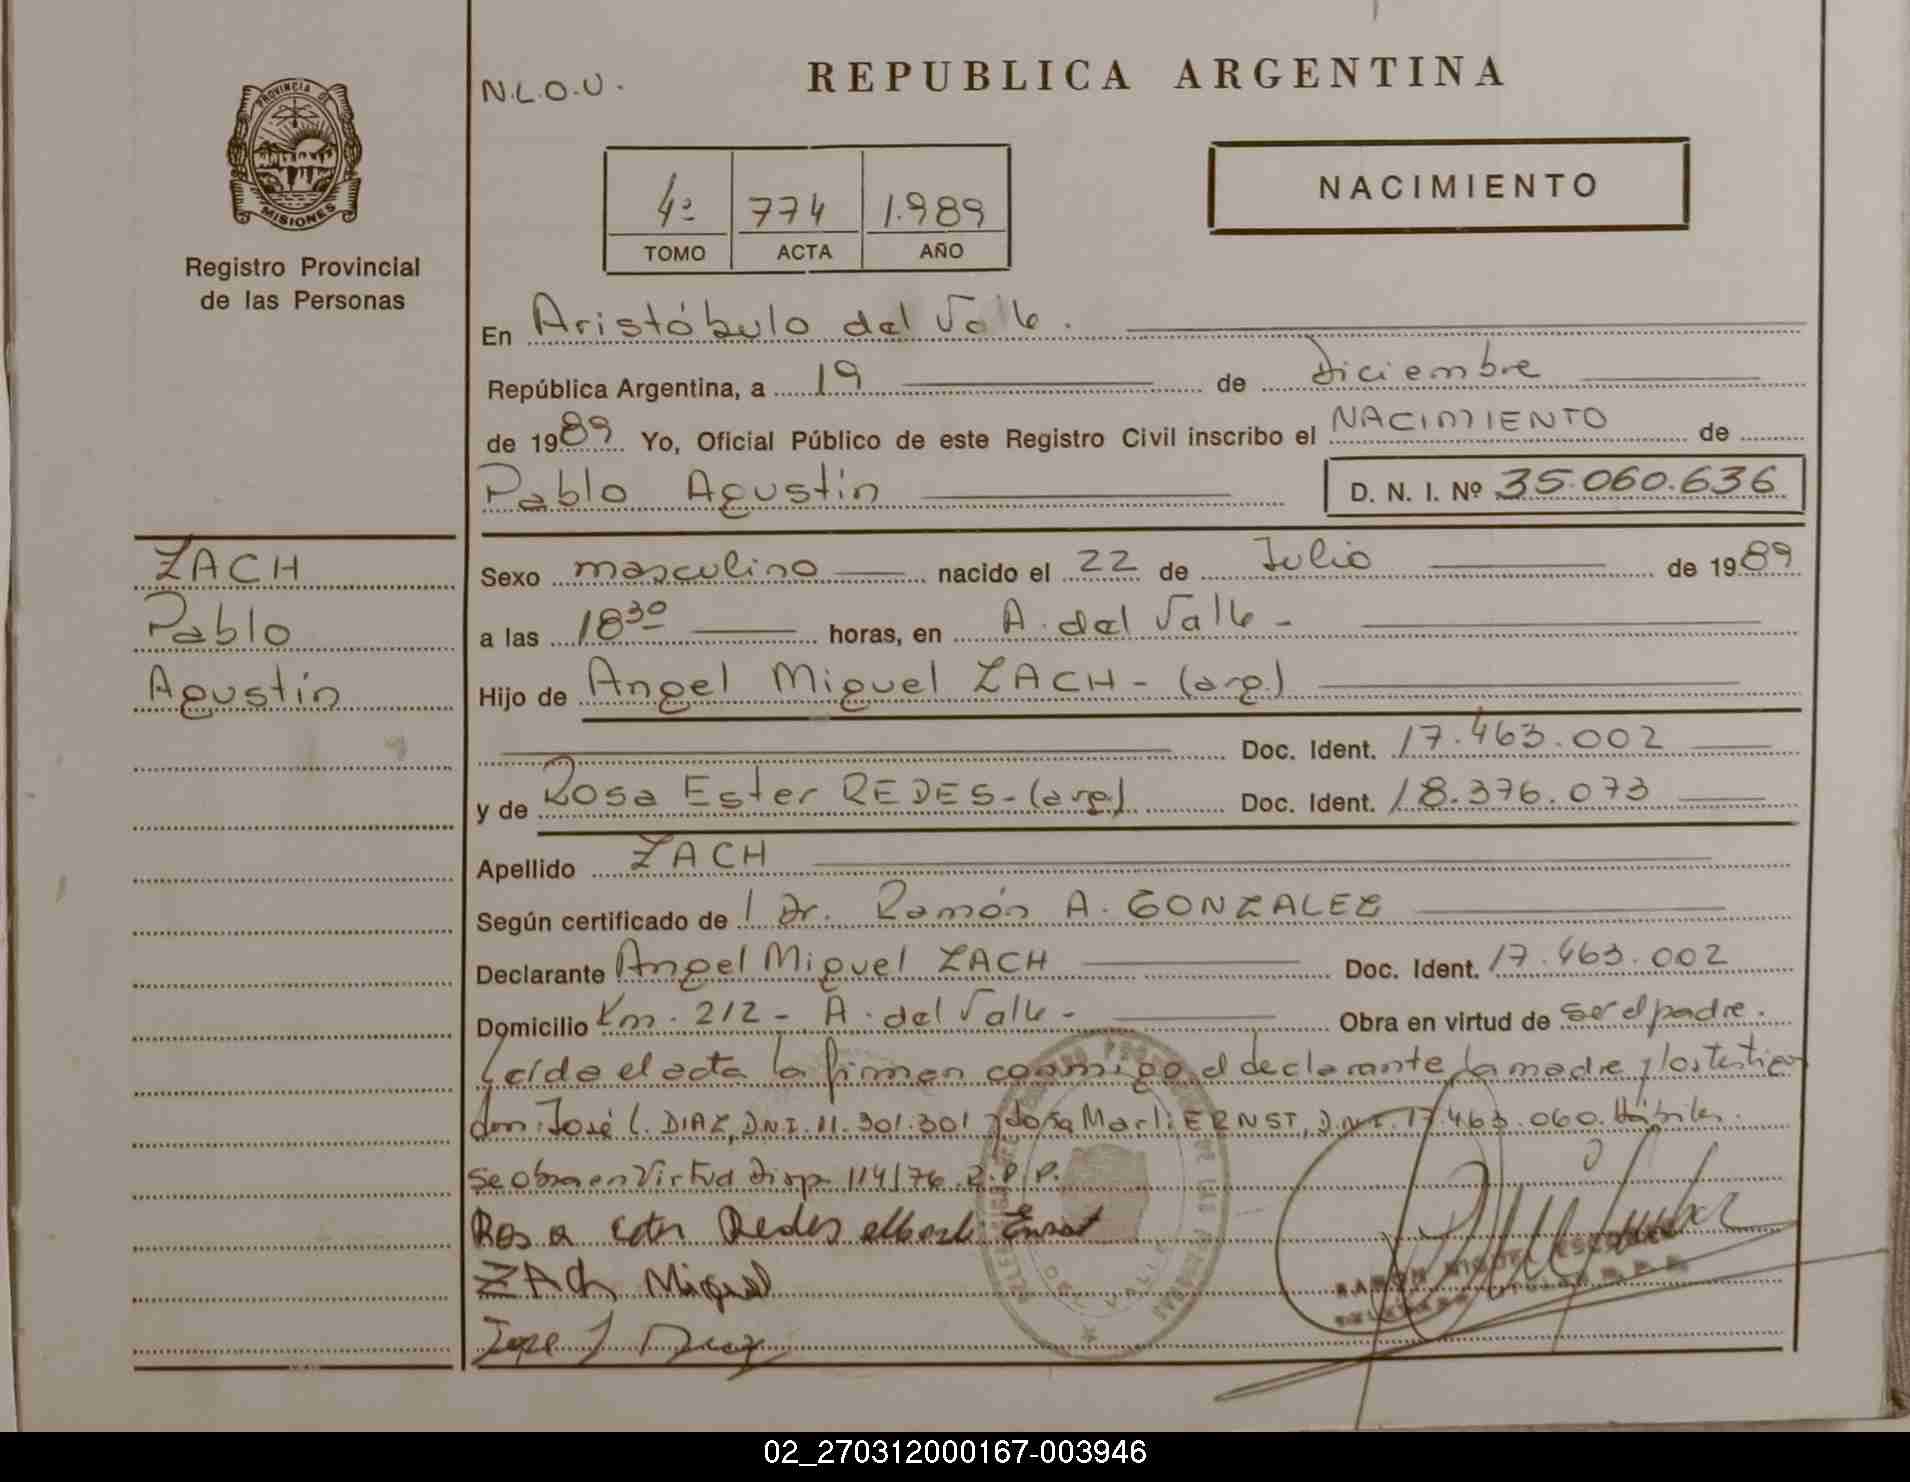 N.L.O.U.
REPUBLICA ARGENTINA
PROVINCIA DE
MISIONES
Registro Provincial
de las Personas
4º 774 1.989
TOMO ACTA AÑO
NACIMIENTO
En Aristóbulo del Valle.
República Argentina, a 19 de Diciembre
de 1989 Yo, Oficial Público de este Registro Civil inscribo el NACIMIENTO de
Pablo Agustín D. N. I. Nº 35.060.636
ZACH
Pablo
Agustín
Sexo masculino nacido el 22 de Julio de 1989
a las 18 30 horas, en A. del Valle -
Hijo de Angel Miguel ZACH - (arg.)
Doc. Ident. 17.463.002
y de Rosa Ester REDES - (arg) Doc. Ident. 18.376.073
Apellido ZACH
Según certificado de l Dr. Ramón A. GONZALEZ
Declarante Angel Miguel ZACH Doc. Ident. 17.463.002
Domicilio Km. 212 - A. del Valle - Obra en virtud de ser el padre.
Leída el acta la firman conmigo el declarante, la madre y los testigos
don: José l. DIAZ, D.N.I. 11.301.301 y Marli ERNST, D.N.I. 17.463.060. Hábiles.
se obra en virtud Disp. 114/76. R.P.P.
Rosa Ester Redes Ernst
ZACH Miguel
Jose Diaz
RAMON MIGUEL
02_270312000167-003946